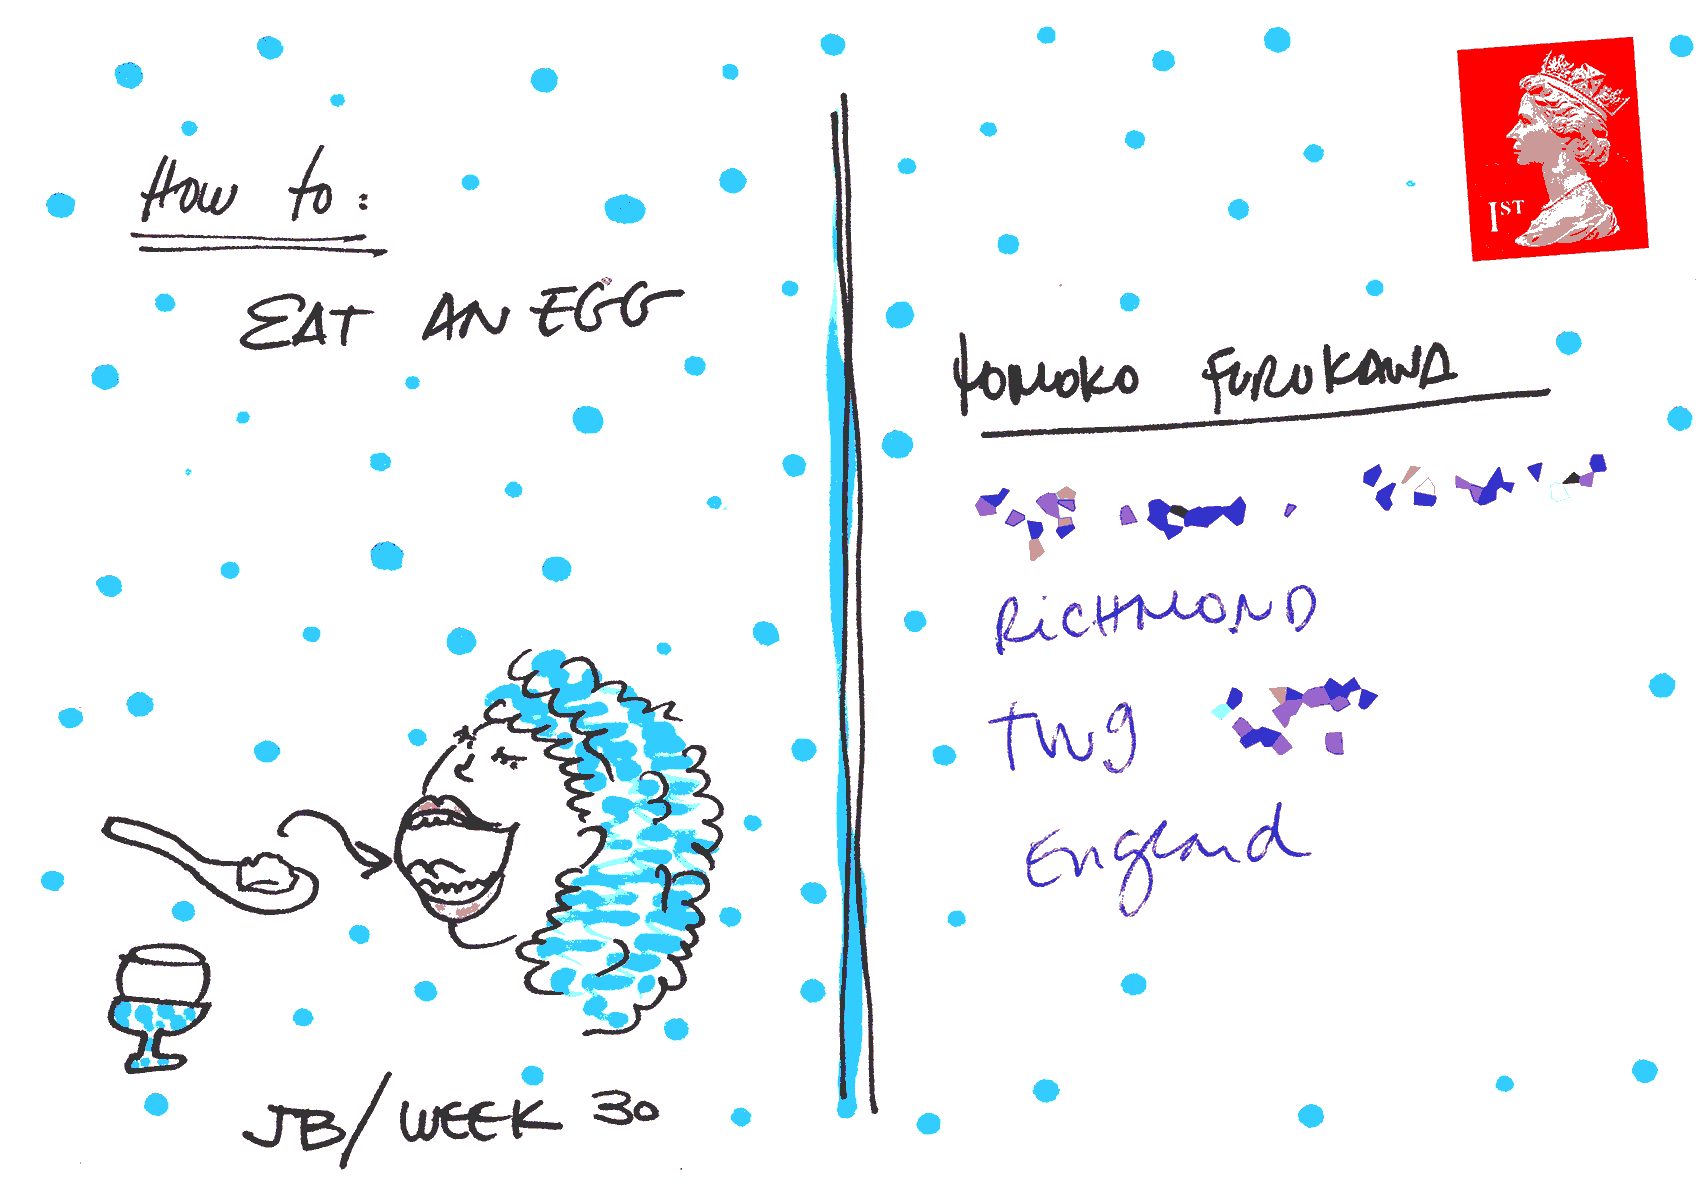 How to:
EAT AN EGG
JB/WEEK 30
1ST
TOMOKO FURUKAWA
RiCHMOND
TW9
England